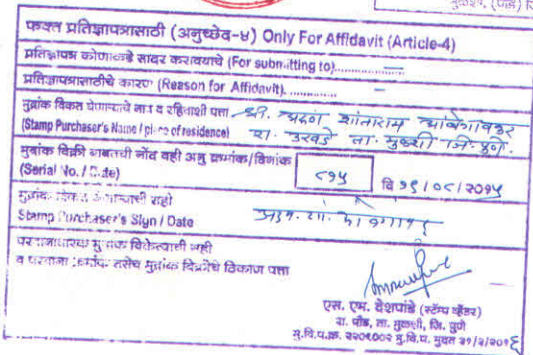 मुळशी, (पौड) जि
फक्त प्रतिज्ञापत्रासाठी (अनुच्छेद-४) Only For Affidavit (Article-4)
प्रतिज्ञापत्र कोणाकडे सादर करावयाचे (For submitting to)..............
प्रतिज्ञापत्रासाठीचे कारण (Reason for Affidavit)..............
मुद्रांक विकत घेणाऱ्याचे नाव व रहिवाशी पत्ता श्री. शांताराम
(Stamp Purchaser's Name / place of residence) रा. उरवडे ता. मुळशी जि. पुणे.
मुद्रांक विक्री बाबतची नोंद वही अनु क्रमांक/दिनांक
(Serial No. / Date) ८१५ दि १९/०८/२०१५
मुद्रांक विकत घेणाऱ्याची सही
Stamp Purchaser's Sign / Date
परवानाधारक मुद्रांक विक्रेत्याची सही
व परवाना क्रमांक तसेच मुद्रांक विक्रीचे ठिकाण पत्ता
एस. एम. देशपांडे (स्टॅम्प व्हेंडर)
रा. पौड, ता. मुळशी, जि. पुणे
मु.वि.प.क्र. २२०१००२ मु.वि.प. मुदत ३१/३/२०१६